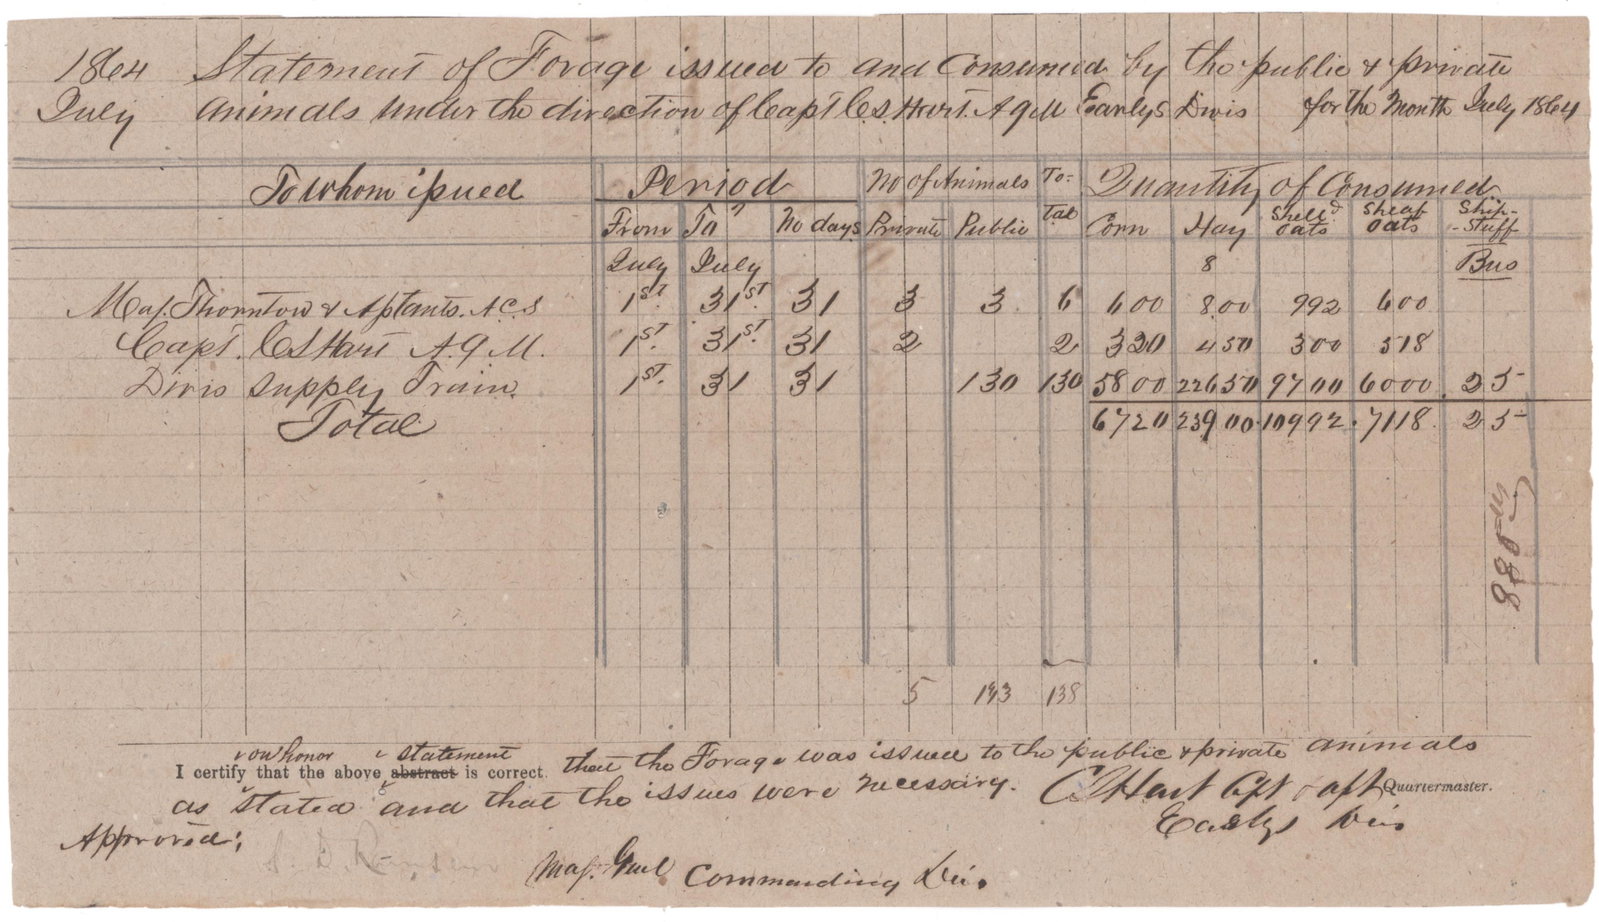 1864 Statement of Forage issued to and Consumed by the public & private
July Animals under the direction of Capt C.S. Hart. A Q M Earlys Divis for the Month July 1864
To whom issued Period No of Animals To- Quantity of Consumed
From To No days Private Public tal Corn Hay Shelld oats Sheaf oats Ship-Stuff
July July 8 Bus
Maj. Thornton & Asstants. A.C.S 1st. 31st. 31 3 3 6 600 800 992 600
Capt. C S Hart A. Q M. 1st. 31st. 31 2 2 320 450 300 518
Divis Supply Train. 1st. 31 31 130 130 5800 22650 9700 6000 25
Total 6720 23900 10992 7118 25
5 133 138
on honor statement
I certify that the above abstract is correct. that the Forage was issued to the public & private animals
as stated and that the issues were necessary. C S Hart Cpt & aff Quartermaster.
Earlys Div
Approved:
Maj. Genl Commanding Div.